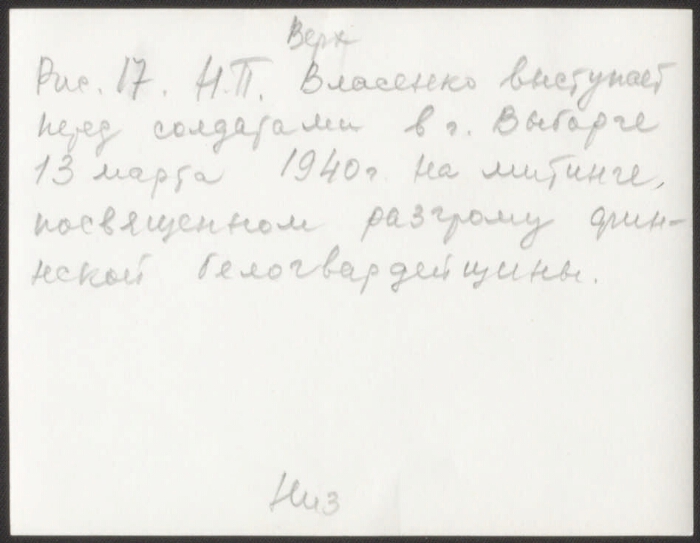 Верх
Рис. 17. Н.П. Власенко выступает
перед солдатами в г. Выборге
13 марта 1940г на митинге,
посвященном разгрому фин-
нской белогвардейщины.
Низ